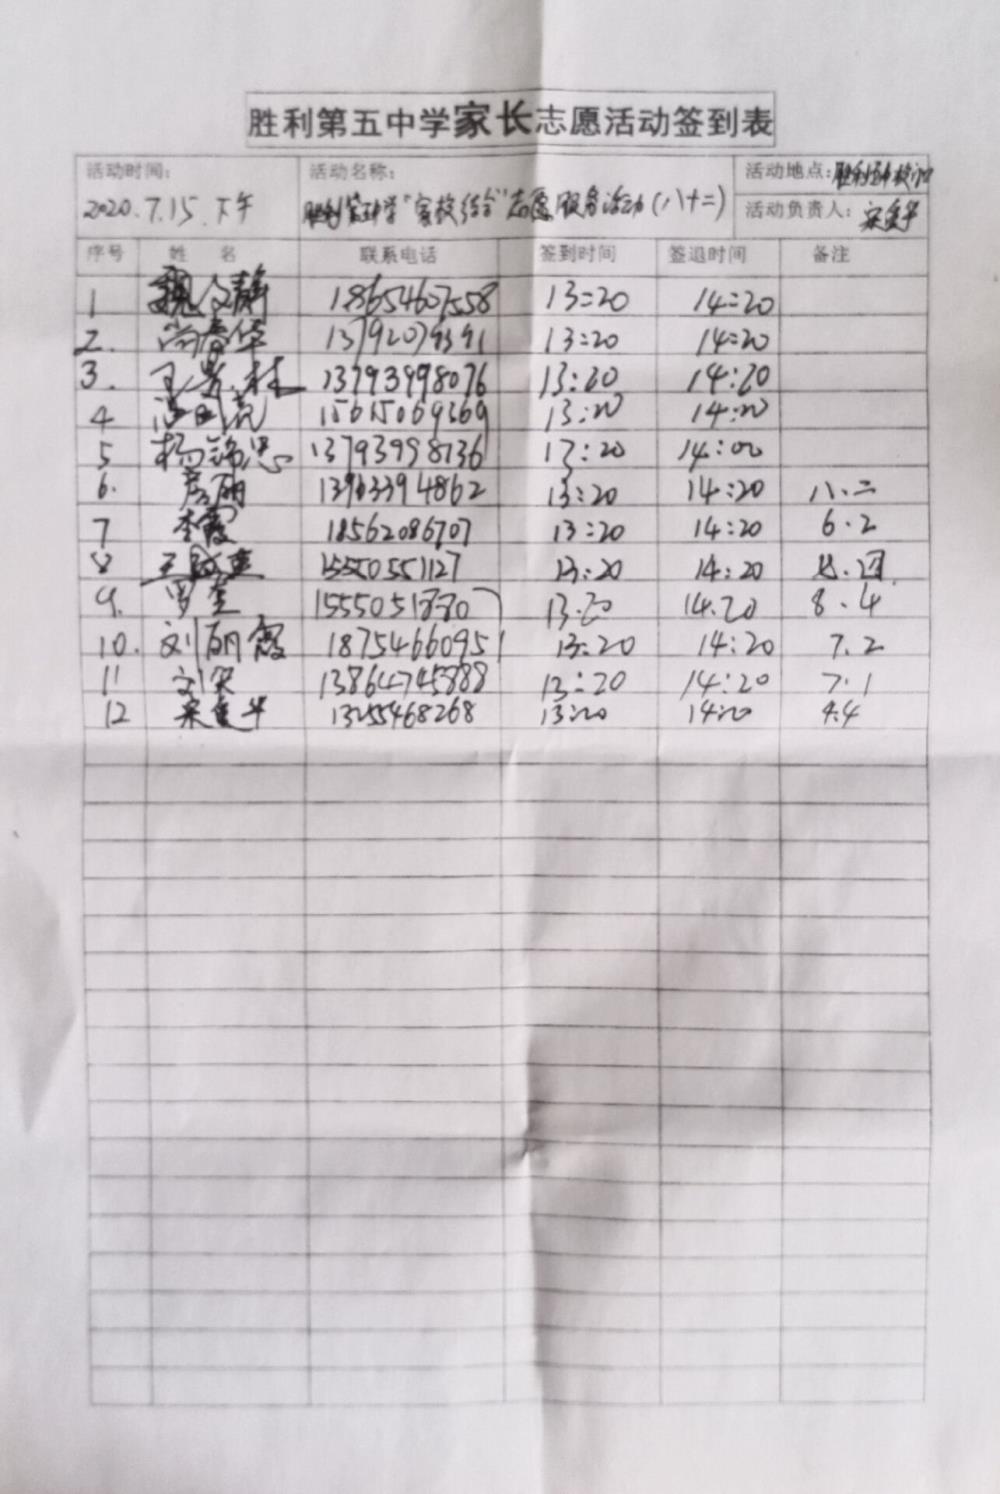 胜利第五中学家长志愿活动签到表
活动时间: 活动名称: 活动地点:胜利五中校门口
2020.7.15.下午 胜利第五中学"家校结合"志愿服务活动(八十二) 活动负责人:宋复华
序号 姓 名 联系电话 签到时间 签退时间 备注
1 魏文静 18654607558 13:20 14:20
2. 尚春华 13:20 14:20
3. 13793998076 13:20 14:20
4 15615069369 13:20 14:20
5 杨锦忠 13793998136 13:20 14:00
6. 房丽 13963394862 13:20 14:20 八.二
7 李霞 18562086707 13:20 14:20 6.2
8 15550551127 13:20 14:20 七.四
9. 罗奎 13.20 14.20 8.4
10. 刘丽霞 18754660951 13:20 14:20 7.2
11 刘荣 13864745888 13:20 14:20 7.1
12 宋复华 13255468268 13:20 14:20 8.4